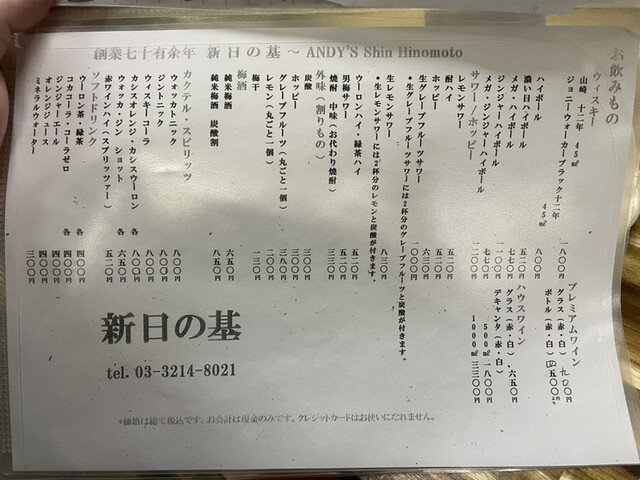 創業七十有余年 新日の基 ～ ANDY'S Shin Hinomoto
お飲みもの
ウィスキー
山崎 十二年 45㎖ 一八〇〇円
ジョニーウォーカーブラック十二年 45㎖ 八〇〇円
ハイボール 五二〇円
濃い目ハイボール 五七〇円
メガ・ハイボール 七七〇円
ジンジャーハイボール
メガ・ジンジャーハイボール
サワー／ホッピー
レモンサワー
酎ハイ 五二〇円
ホッピー 五二〇円
生グレープフルーツサワー 六三〇円
・生グレープフルーツサワーには2杯分のグレープフルーツと炭酸が付きます。
生レモンサワー 八三〇円
・生レモンサワーには2杯分のレモンと炭酸が付きます。
ウーロンハイ・緑茶ハイ 五二〇円
男梅サワー 五二〇円
焼酎 中味（お代わり焼酎） 三一〇円
外味（割りもの）
炭酸 三〇〇円
ホッピー 三一〇円
グレープフルーツ（丸ごと一個） 三八〇円
レモン（丸ごと一個） 二〇〇円
梅干 一三〇円
梅酒
純米梅酒 六五〇円
純米梅酒 炭酸割 八五〇円
カクテル・スピリッツ
ウォッカトニック 八〇〇円
ジントニック 八〇〇円
ウィスキーコーラ 八〇〇円
カシスオレンジ・カシスウーロン 各 八〇〇円
ウォッカ・ジン ショット 各 六五〇円
赤ワインハイ（スプリッツァー） 五二〇円
ソフトドリンク
ウーロン茶・緑茶 各 四〇〇円
コカコーラ・コーラゼロ 各 四〇〇円
ジンジャーエール 四〇〇円
オレンジジュース 四〇〇円
ミネラルウォーター 三〇〇円
プレミアムワイン
グラス（赤・白） 九〇〇円
ボトル（赤・白） 四五〇〇円
ハウスワイン
グラス（赤・白） 六五〇円
デキャンタ（赤・白）
500㎖ 一八〇〇円
1000㎖ 三三〇〇円
新日の基
tel. 03-3214-8021
*価格は総て税込です。お会計は現金のみです。クレジットカードはお使いになれません。